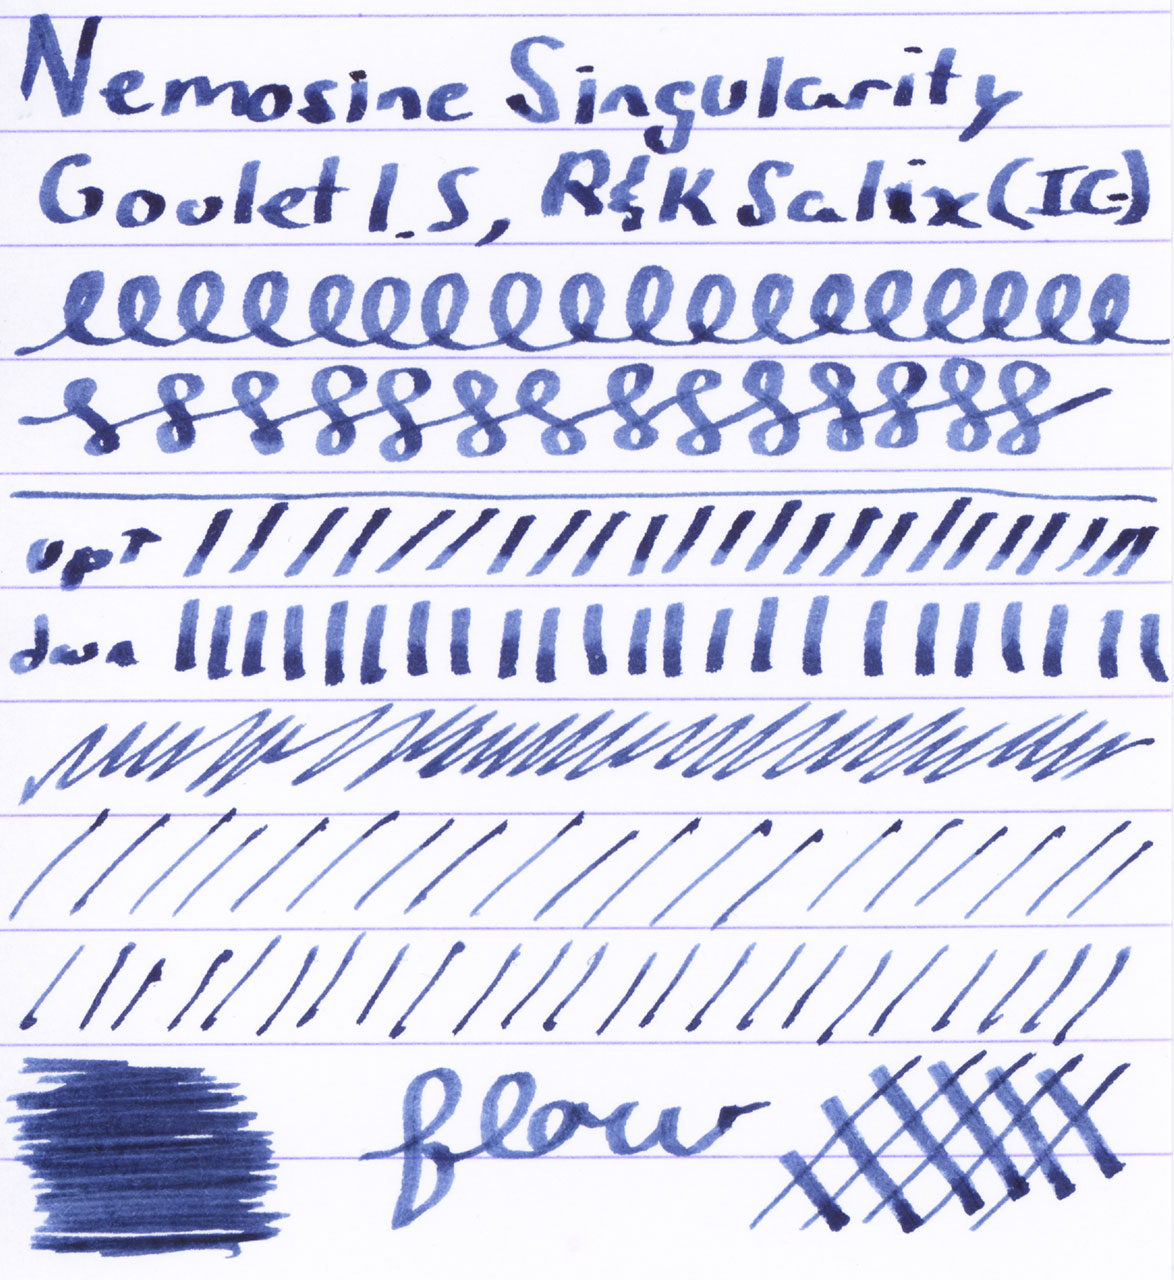 Nemosine Singularity
Goulet 1.5, R&K Salix (IG)
up↑
dwn
flow